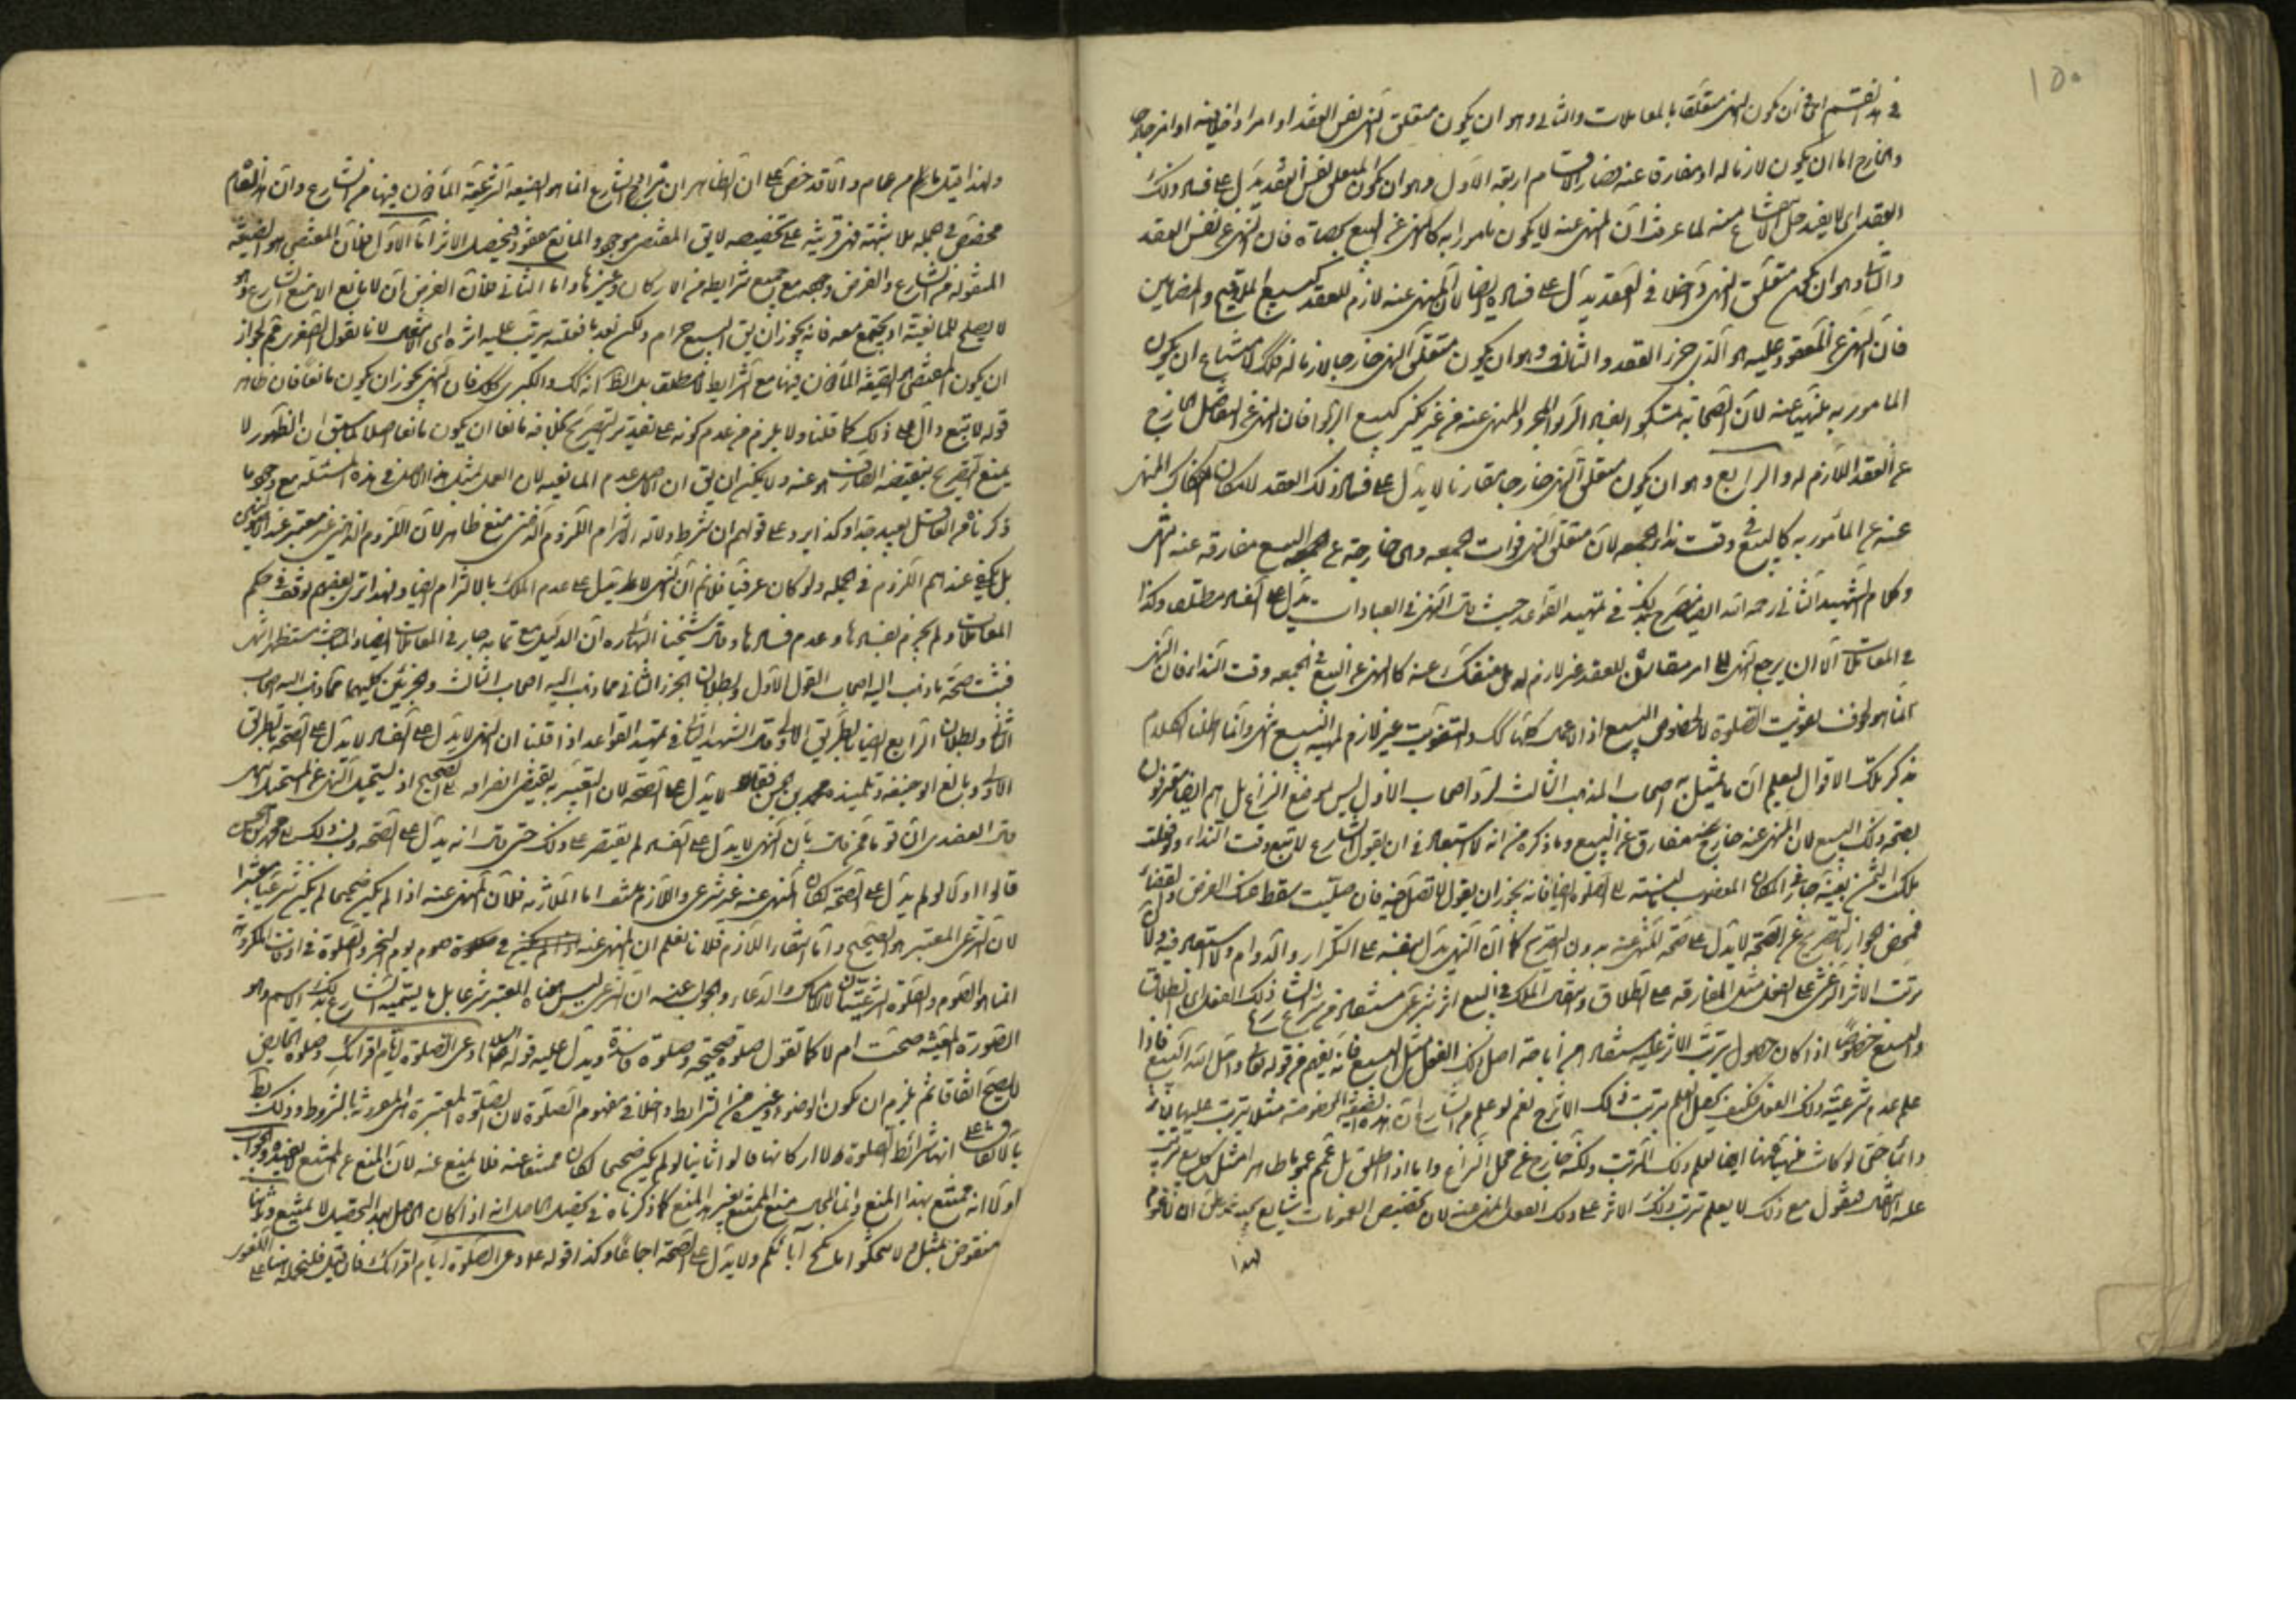 ١٥٠
في هذا القسم اي في ان يكون النهي متعلقا بالمعاملات والثاني وهو ان يكون متعلق النهي نفس العقد او امرا داخلا فيه او امرا خارجا
والخارج اما ان يكون لازما له او مفارقا عنه فصار الاقسام اربعة الاول وهو ان يكون المتعلق نفس العقد يدل على فساد ذلك
العقد اي لا يفيد حل الانتفاع منه لما عرفت ان المنهي عنه لا يكون مامورا به كالنهي عن البيع بحصاة فان النهي عن نفس العقد
والثاني وهو ان يكون متعلق النهي داخلا في العقد يدل على فساده ايضا لان المنهي عنه لازم للعقد كبيع الملاقيح والمضامين
فان النهي عن المعقود عليه هو الذي جزء العقد والثالث وهو ان يكون متعلق النهي خارجا لازما له كذلك لامتناع ان يكون
المامور به منهيا عنه لان الصحابة تمسكوا بفساد الربوا لمجرد المنهي عنه من غير نكير كبيع الربوا فان النهي عن التفاضل الخارج
عن العقد اللازم له والرابع وهو ان يكون متعلق النهي خارجا مقارنا لا يدل على فساد ذلك العقد لامكان انفكاك المنهي
عنه عن المأمور به كالبيع في وقت نداء الجمعه لان متعلق النهي فوات الجمعه وهي خارجة عن البيع مفارقه عنه
وكلام الشهيد الثاني رحمه الله ايضا صريح بذلك في تمهيد القواعد حيث قال النهي في العبادات يدل على الفساد مطلقا وكذا
في المعاملات الا ان يرجع النهي الى امر مقارن للعقد غير لازم له بل منفك عنه كالنهي عن البيع في الجمعه وقت النداء فان النهي
انما هو لخوف تفويت الصلوة لا لخصوص البيع اذ الاعمال كلها كذلك والتفويت غير لازم لمهية البيع انتهى وانما اطلنا الكلام
بذكر تلك الاقوال ليعلم ان ما تمثل به اصحاب المذهب الثالث لرد اصحاب الاول ليس موضع النزاع بل هم ايضا معترفون
بصحة ذلك البيع لان المنهي عنه خارج مفارق عن البيع وما ذكره من انه لا استبعاد في ان يقول الشارع لا تبع وقت النداء ولو فعلت
ملكت الثمن بعينه جار في المكان المغصوب بالنسبة الى الصلوة ايضا فانه يجوز ان يقول لا تصل فيه فان صليت سقط عنك الفرض والقضاء
فمحض الجواز بالتصريح عن الصحة لا يدل على صحة المنهي عنه بدون التصريح كما ان النهي يدل بنفسه على التكرار والدوام ولا استبعاد فيه ولان
ترتب الاثر الشرعي على الفعل مثل المفارقه على الطلاق وانتقال الملك في البيع اثر شرعي مستفاد من الشارع
والبيع خصوصا اذا كان حصول ترتب الاثر عليه مستفاد من اباحة اصل ذلك الفعل مثل البيع فانه يفهم من قوله تعالى واحل الله البيع فاذا
علم عدم شرعية ذلك الفعل فكيف يحصل العلم بترتب ذلك الاثر نعم لو علم من الشارع ان هذه الصيغة الموضوعة مثلا يترتب عليها الاثر
دائما حتى لو كانت منهيا عنها ايضا لعلم ذلك الترتب ولكنه خارج عن محل النزاع واما اذا اطلق بل عمم عموما ظاهرا مثل كل بيع يترتب
عليه الانتقال فنقول مع ذلك لا يعلم ترتب ذلك الاثر على ذلك الفعل المنهي عنه لان تخصيص العمومات شايع
لهذا
ولهذا قيل ما من عام الا وقد خص على ان الظاهر ان مراد الشارع انما هو الصيغة الشرعية المأذون فيها من الشارع وان هذا العام
مخصص في الجمله بلا شبهة فهي قرينة على تخصيصه لا يق المقتضي موجود والمانع مفقود فيحصل الاثر اما الاول فلان المقتضي هو الصيغة
المنقوله من الشارع والفرض وجودها مع جميع شرايطه من الاركان وغيرها واما الثاني فلان الفرض ان لا مانع الا منع الشارع وهو
لا يصلح للمانعية اذ يجتمع معه فانه يجوز ان يق البيع حرام ولكن بعد ما فعلته يترتب عليه اثره اي الانتقال لانا نقول الصغرى مم لجواز
ان يكون المقتضي الصيغة المأذون فيها مع الشرايط لا مطلق بل الظ انه كك والكبرى كك فان النهي يجوز ان يكون مانعا فان ظاهر
قوله لا تبع دال على ذلك كما قلنا ولا يلزم من عدم كونه على تقدير التصريح بخلافه مانعا ان يكون مانعا اصلا كما سبق ان الظهور لا
يمنع التصريح بنقيضه الصارف هو عنه ولا يمكن ان يق ان الاصل عدم المانعية لان العمل بمثل هذا الاصل في هذه المسئله مع وجود ما
ذكرناه من القائل بعيد جدا وكذا يرد على قولهم ان شرط دلالة الالتزام اللزوم الذهني منع ظاهر لان اللزوم الذهني غير معتبر عند الاصوليين
بل يكفي عندهم اللزوم في الجمله ولو كان عرفيا فلا نم ان النهي لا يدل على عدم الملك بالالتزام ايضا ولهذا ترى بعضهم توقف في حكم
المعاملات ولم يجزم بفسادها وعدم فسادها وقال شيخنا البهائي ره ان الدليل مع تمامه جار في المعاملات ايضا والباحث مستظهر انتهى
فثبت صحة ما ذهب اليه اصحاب القول الاول وبطلان الجزء الثاني مما ذهب اليه اصحاب الثالث والجزئين كليهما مما ذهب اليه اصحاب
الثاني وبطلان الرابع ايضا بالطريق الاولى وقال الشهيد الثاني في تمهيد القواعد اذا قلنا ان النهي لا يدل على الفساد لا يدل على الصحة بالطريق
الاولى وبالغ ابو حنيفة وتلميذه محمد بن الحسن فقالا يدل على الصحة لان التعبير به يقتضي انصرافه الى الصحيح اذ يستحيل النهي عن المستحيل انتهى
قال العضدي ان قوما ممن قال بان النهي لا يدل على الفساد لم يقتصر على ذلك حتى قال انه يدل على الصحة ونسب ذلك الى محمد بن الحسن
قالوا اولا لو لم يدل على الصحة لكان المنهي عنه غير شرعي واللازم منتف اما الملازمه فلان المنهي عنه اذا لم يكن صحيحا لم يكن شرعيا معتبرا
لان الشرعي المعتبر هو الصحيح واما انتفاء اللازم فلانا نعلم ان المنهي عنه في صوم يوم النحر والصلوة في اوقات المكروهة
انما هو الصوم والصلوة الشرعيتان لا الامساك والدعاء والجواب عنه ان الشرعي ليس معناه المعتبر شرعا بل ما يسميه الشارع بذلك الاسم وهو
الصورة المعينة صحت ام لا كما تقول صلوة صحيحة وصلوة فاسدة ويدل عليه قوله دعي الصلوة ايام اقرائك وصلوة الحائض
لا يصح اتفاقا ثم يلزم ان يكون الوضوء وغيره من الشرايط داخلا في مفهوم الصلوة لان الصلوة المعتبرة هي المقرونة بالشروط وذلك بط
بالاتفاق على انها شرائط الصلوة لا اركانها قالوا ثانيا لو لم يكن صحيحا لكان ممتنعا عنه فلا يمنع عنه لان المنع عن الممتنع لا يفيد والجواب
اولا انه ممتنع بهذا المنع وانما المحال منع الممتنع بغير هذا المنع كما ذكرناه في تحصيل الحاصل انه اذا كان الحاصل بهذا التحصيل لا يمتنع وثانيا
منقوض بمثل ولا تنكحوا ما نكح آباؤكم ولا يدل على الصحة اجماعا وكذا قوله دعي الصلوة ايام اقرائك فان قيل فليحمله هنا على اللغوي